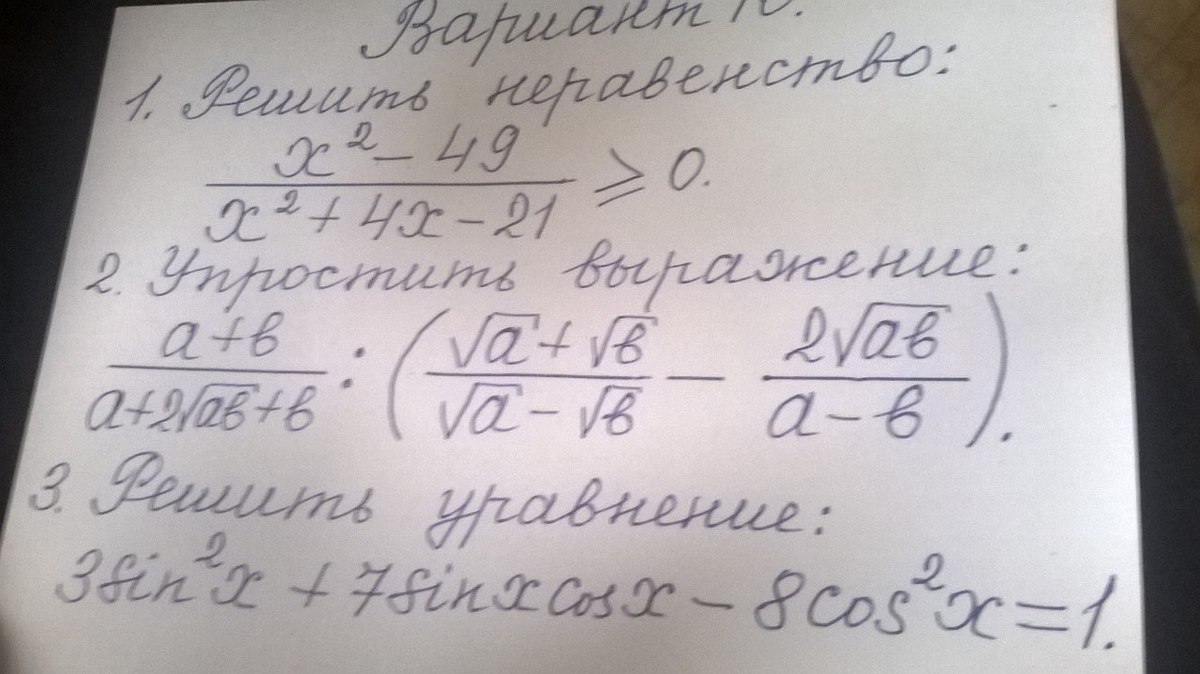 Вариант
1. Решить неравенство:
x² - 49
x² + 4x - 21
≥ 0.
2. Упростить выражение:
a+b
a+2√ab+b
: (
√a + √b
√a - √b
-
2√ab
a - b
).
3. Решить уравнение:
3sin²x + 7sinxcosx - 8cos²x = 1.